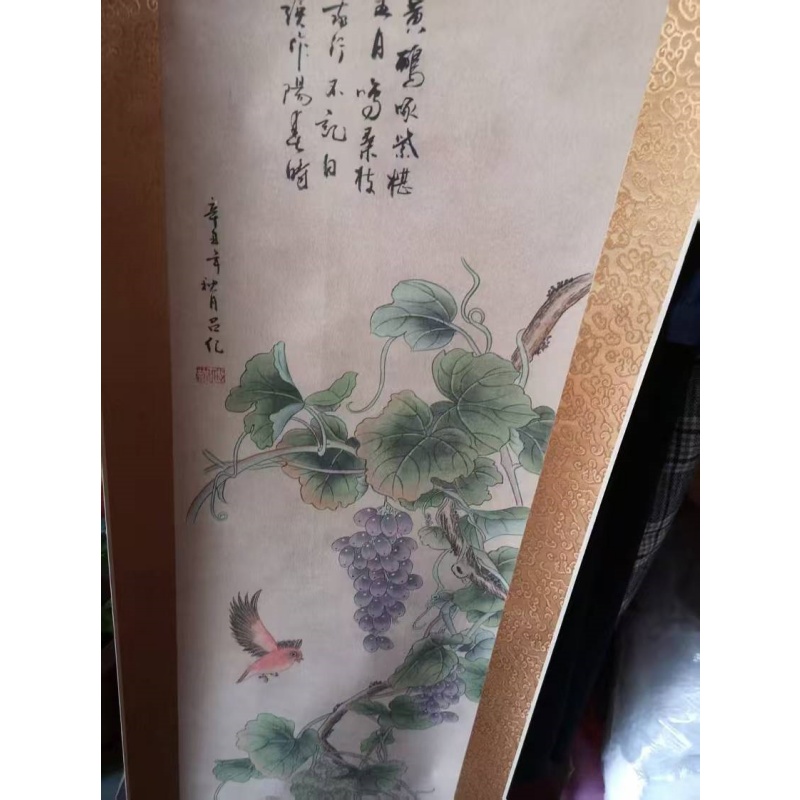 黄鹂啄紫椹
五月鸣桑枝
我行不记日
误作陽春时
辛丑年秋月吕